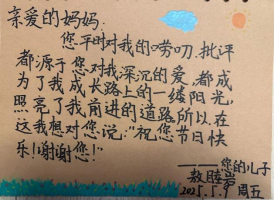 亲爱的妈妈:
您平时对我的唠叨.批评
都源于您对我深沉的爱,都成
为了我成长路上的一缕阳光,
照亮了我前进的道路所以在
这我想对您说:"祝您节日快
乐!谢谢您!"
——您的儿子
敖睦
2025.5.9 周五